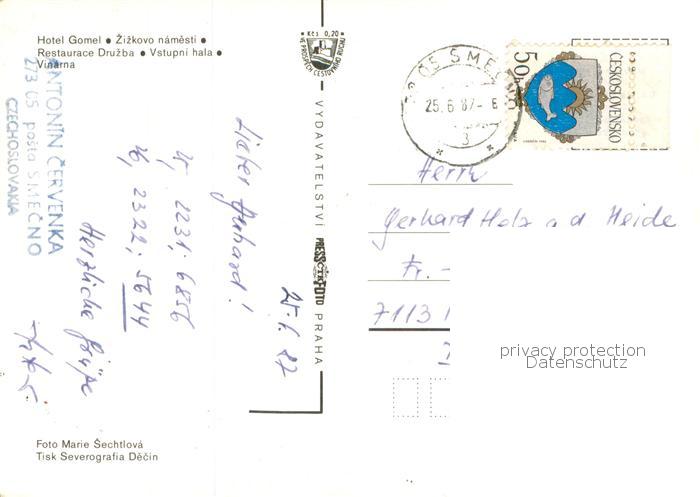 Hotel Gomel • Žižkovo náměstí •
Restaurace Družba • Vstupní hala •
Vinárna
ANTONÍN ČERVENKA
273 05 pošta SMEČNO
CZECHOSLOVAKIA
25.6.87
Lieber Gerhard!
15, 2231; 6856
16, 2322; 5644
Herzliche Grüße
Foto Marie Šechtlová
Tisk Severografia Děčín
Kčs 0,20
VE PROSPĚCH CESTOVNÍHO RUCHU
VYDAVATELSTVÍ PRESSFOTO PRAHA
ČTK
25.6.87-6
3
50
ČESKOSLOVENSKO
Herrn
Gerhard Holz a d Heide
Fr.-
7113
privacy protection
Datenschutz